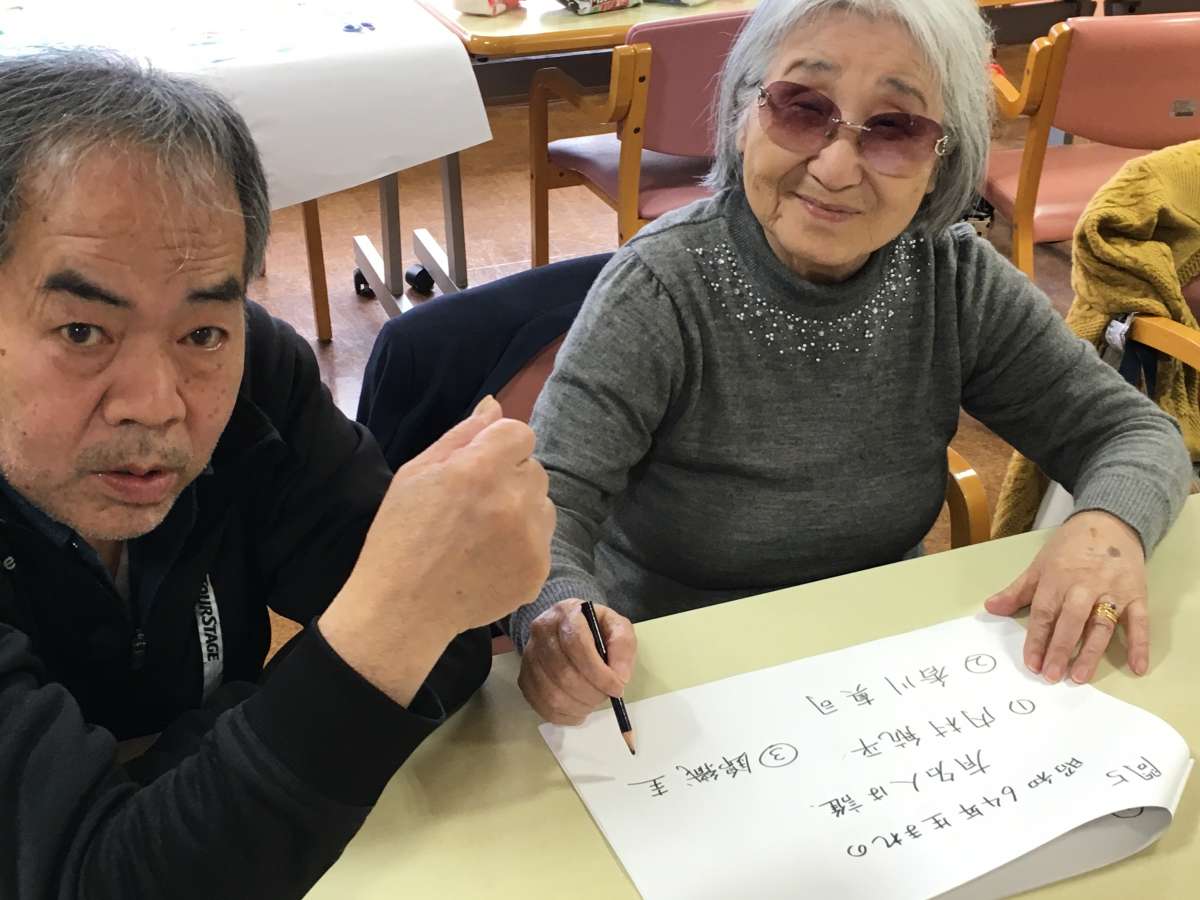 問5
昭和64年生まれの
有名人は誰.
①内村航平
②香川真司
③錦織圭
OURSTAGE